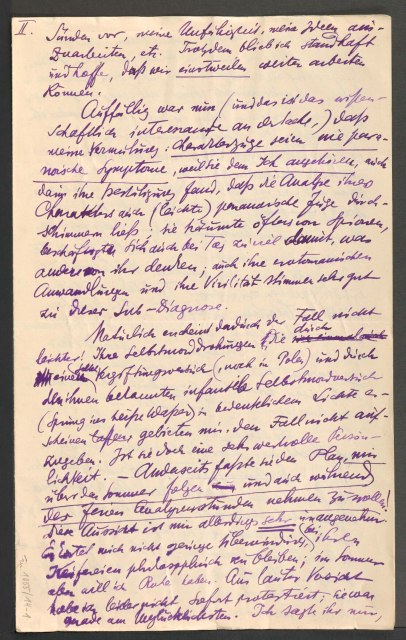 II.
Sünden vor, meine Unfähigkeit, meine Ideen aus-
zuarbeiten, etc. Trotzdem blieb ich standhaft
und hoffe, daß wir einstweilen weiter arbeiten
können.
Auffällig war nun (und das ist das wissen-
schaftlich interessante an der Sache,) daß
meine Vermutung: Charakterzüge seien wie para-
noische Symptome, weil sie dem Ich angehören, auch
darin ihre Bestätigung fand, daß die Analyse ihres
Charakters auch (leichte) paranoische Züge durch-
schimmern ließ; sie träumte öfters von Spionen,
beschäftigte sich auch bei Tag zuviel damit, was
andere von ihr denken; auch ihre erotomanischen
Anwandlungen und ihre Virilität stimmen sehr gut
zu dieser Sub-Diagnose.
Natürlich erscheint dadurch der Fall nicht
leichter! Ihre Selbstmorddrohungen, die durch
einen Vergiftungsversuch (noch in Pola) und durch
den Ihnen bekannten infantilen Selbstmordversuch
(Sprung ins heiße Wasser) in bedenklichem Lichte er-
scheinen lassen, gebieten mir, den Fall nicht auf-
zugeben. Ist sie doch eine sehr wertvolle Persön-
lichkeit. — Anderseits faßte sie den Plan, mir
über den Sommer zu folgen und auch während
der Ferien Analysenstunden nehmen zu wollen.
Diese Aussicht ist mir allerdings sehr unangenehm.
Es kostet mich nicht geringe Überwindung, bei
philosophisch zu bleiben; im Sommer
aber will ich Ruhe haben. Aus lauter Vorsicht
habe ich leider nicht sofort protestiert; sie war
gerade am unglücklichsten. Ich sagte ihr nur,